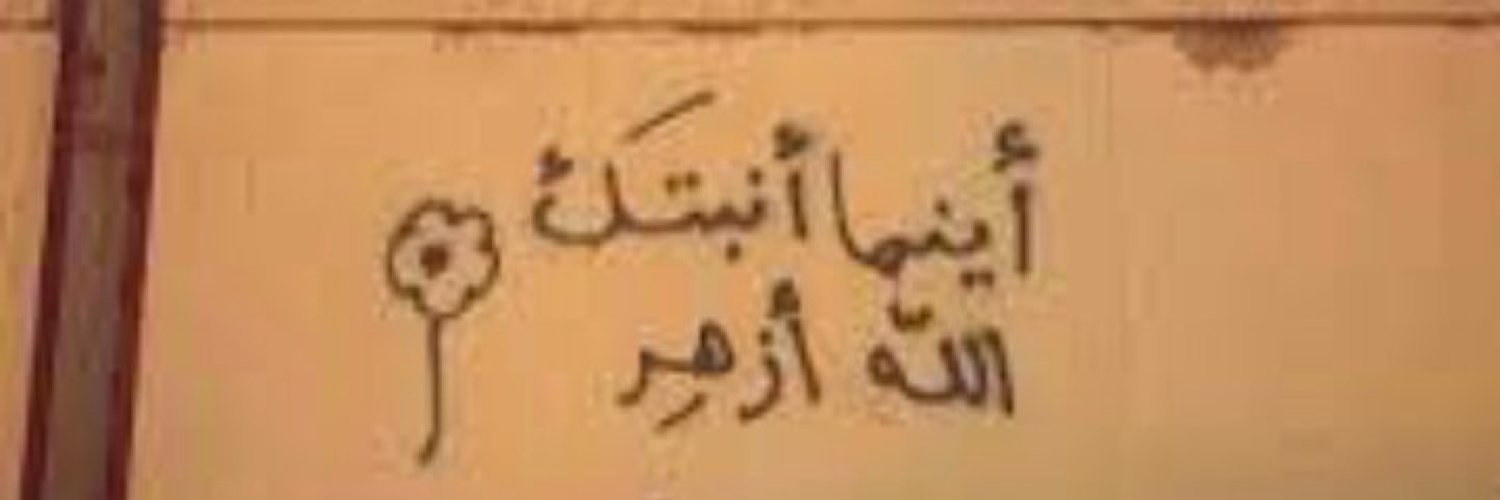 أينما أنبتَك
الله أزهِر